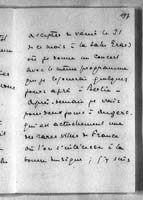 197
accepter de venir le 21
de ce mois à la Salle Erard
où je donne un concert
avec le même programme
que je jouerai quelques
jours après à Berlin -
Après-demain je vais
pour deux jours à Angers,
qui est actuellement une
des rares villes de France
où l'on s'intéresse à la
bonne musique ; j'y suis